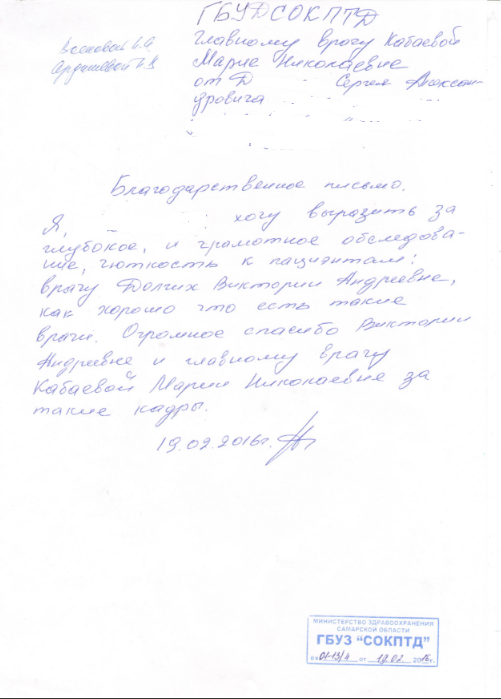 ГБУДСОКПТД
главному врачу Кабаевой
Марие Николаевне
от Д Сергея Александровича
Благодарственное письмо.
Я, хочу выразить за
глубокое, и грамотное обследова-
ние, чюткость к пациэнтам:
врачу Долгих Виктории Андреевне,
как хорошо что есть такие
врачи. Огромное спасибо Виктории
Андреевне и главному врачу
Кабаевой Марии Николаевне за
такие кадры.
19.02.2016г.
МИНИСТЕРСТВО ЗДРАВООХРАНЕНИЯ
САМАРСКОЙ ОБЛАСТИ
ГБУЗ "СОКПТД"
от 19.02. 2016г.